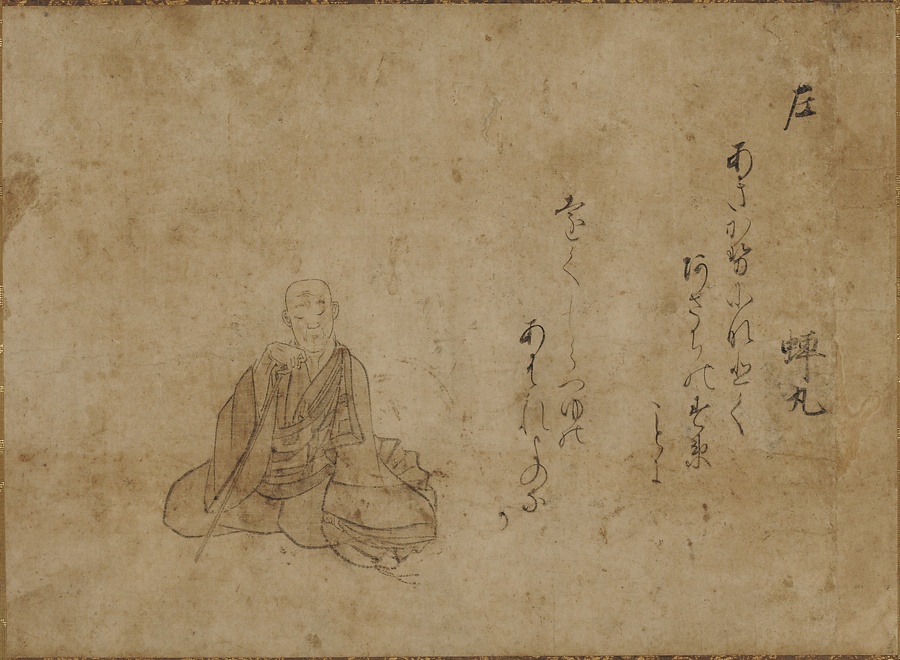 左 蝉丸
あきかせになひく
あさちのすゑ
ことに
をくしらつゆの
あはれよのな
か